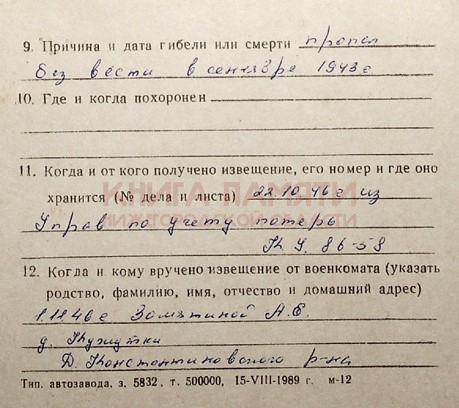 9. Причина и дата гибели или смерти пропал
без вести в сентябре 1943 г
10. Где и когда похоронен
11. Когда и от кого получено извещение, его номер и где оно
хранится (№ дела и листа) 22.10.46 г из
КНИГА ПАМЯТИ
Управ по учету потерь
НИЖЕГОРОДСКОЙ ОБЛАСТИ
86-58
12. Когда и кому вручено извещение от военкомата (указать
родство, фамилию, имя, отчество и домашний адрес)
1.11.46 г Замятиной А.Е.
д.
Д. Константиновского р-на
Тип. автозавода, з. 5832, т. 500000, 15-VIII-1989 г. м-12